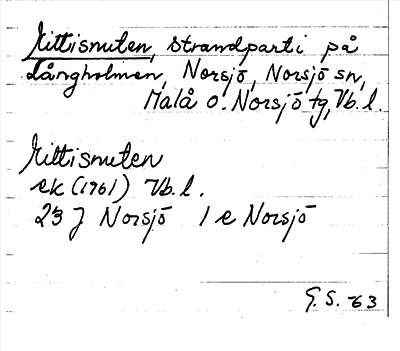 Kittisnuten, strandparti på
Långholmen, Norsjö, Norsjö sn,
Malå o. Norsjö tg, Vb. l.
Kittisnuten
ek (1961) Vb. l.
23 J Norsjö 1 e Norsjö
G. S. -63